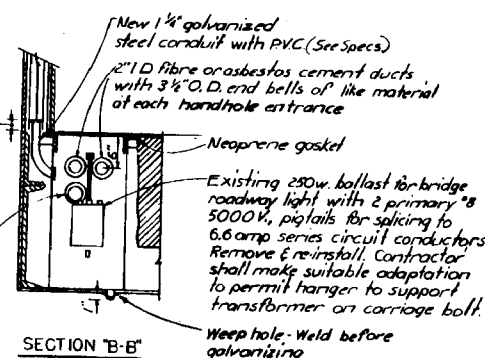 New 1¼" galvanized
steel conduit with P.V.C. (See Specs)
2" I.D. fibre or asbestos cement ducts
with 3½" O.D. end bells of like material
at each handhole entrance
6"
Neoprene gasket
Existing 250w. ballast for bridge
roadway light with 2 primary #8
5000 V., pigtails for splicing to
6.6 amp series circuit conductors
Remove & reinstall. Contractor
shall make suitable adaptation
to permit hanger to support
transformer on carriage bolt.
Weep hole - Weld before
galvanizing
SECTION "B-B"